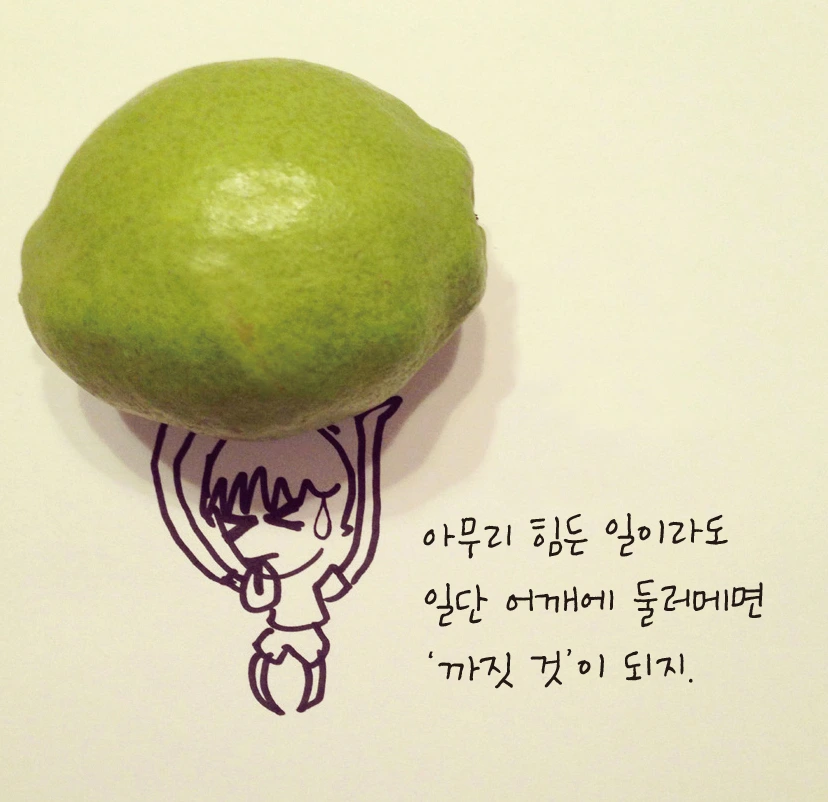 아무리 힘든 일이라도
일단 어깨에 둘러메면
‘까짓 것’이 되지.